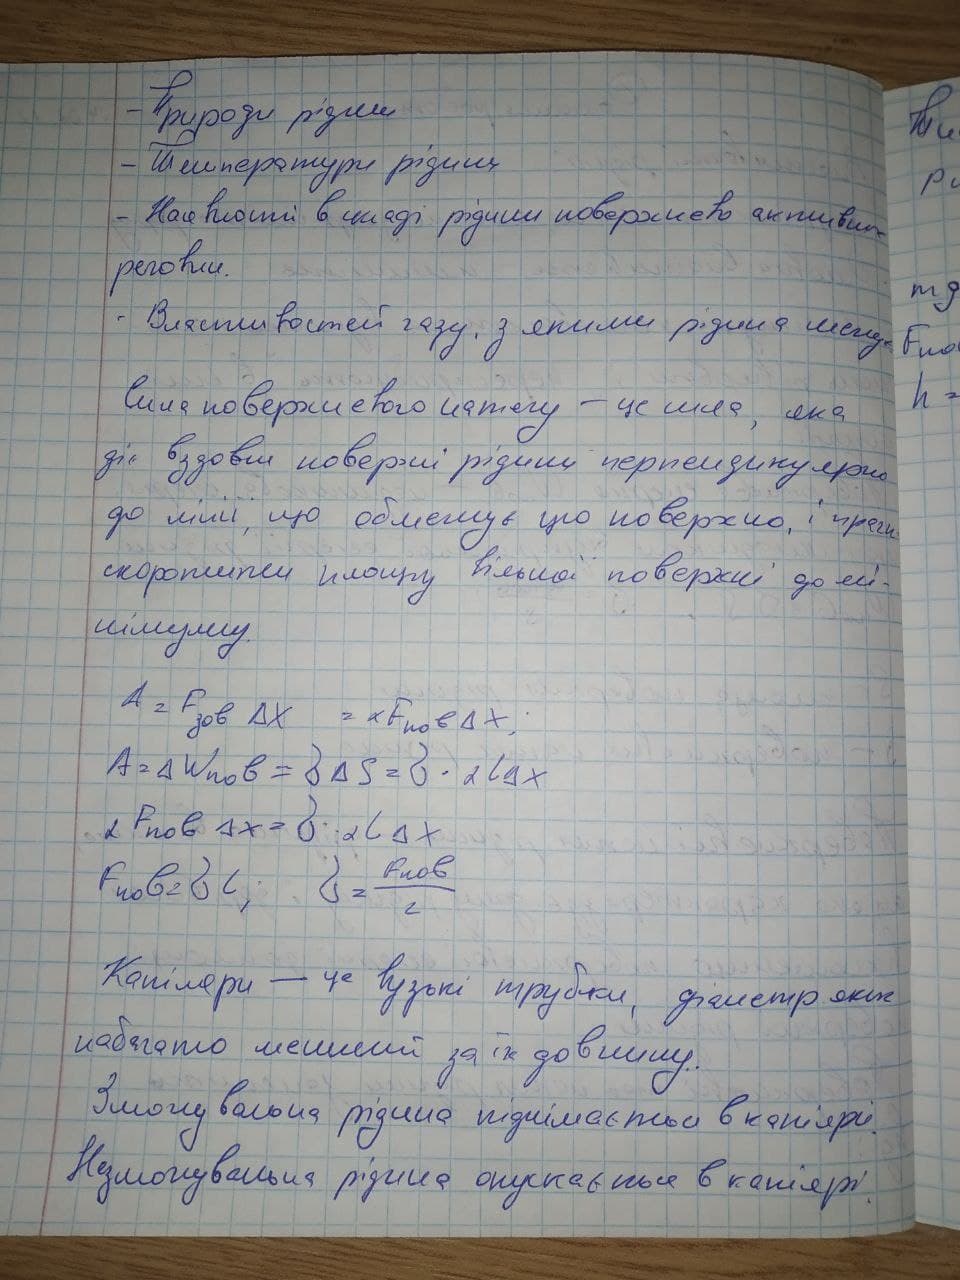 - Природи рідини
- Температури рідини
- Наявності в складі рідини поверхнево активних
речовин.
- Властивостей газу, з якими рідина межує
Сила поверхневого натягу – це сила, яка
діє вздовж поверхні рідини перпендикулярно
до лінії, що обмежує цю поверхню, і прагне
скоротити площу вільної поверхні до мі-
німуму.
A = Fзов Δx = 2Fпов Δx;
A = ΔWпов = δ ΔS = δ · 2LΔx
2 Fпов Δx = δ · 2LΔx
Fпов = δL; δ = Fпов/L
Капіляри — це вузькі трубки, діаметр яких
набагато менший за їх довжину.
Змочувальна рідина піднімається в капілярі.
Незмочувальна рідина опускається в капілярі.
h =